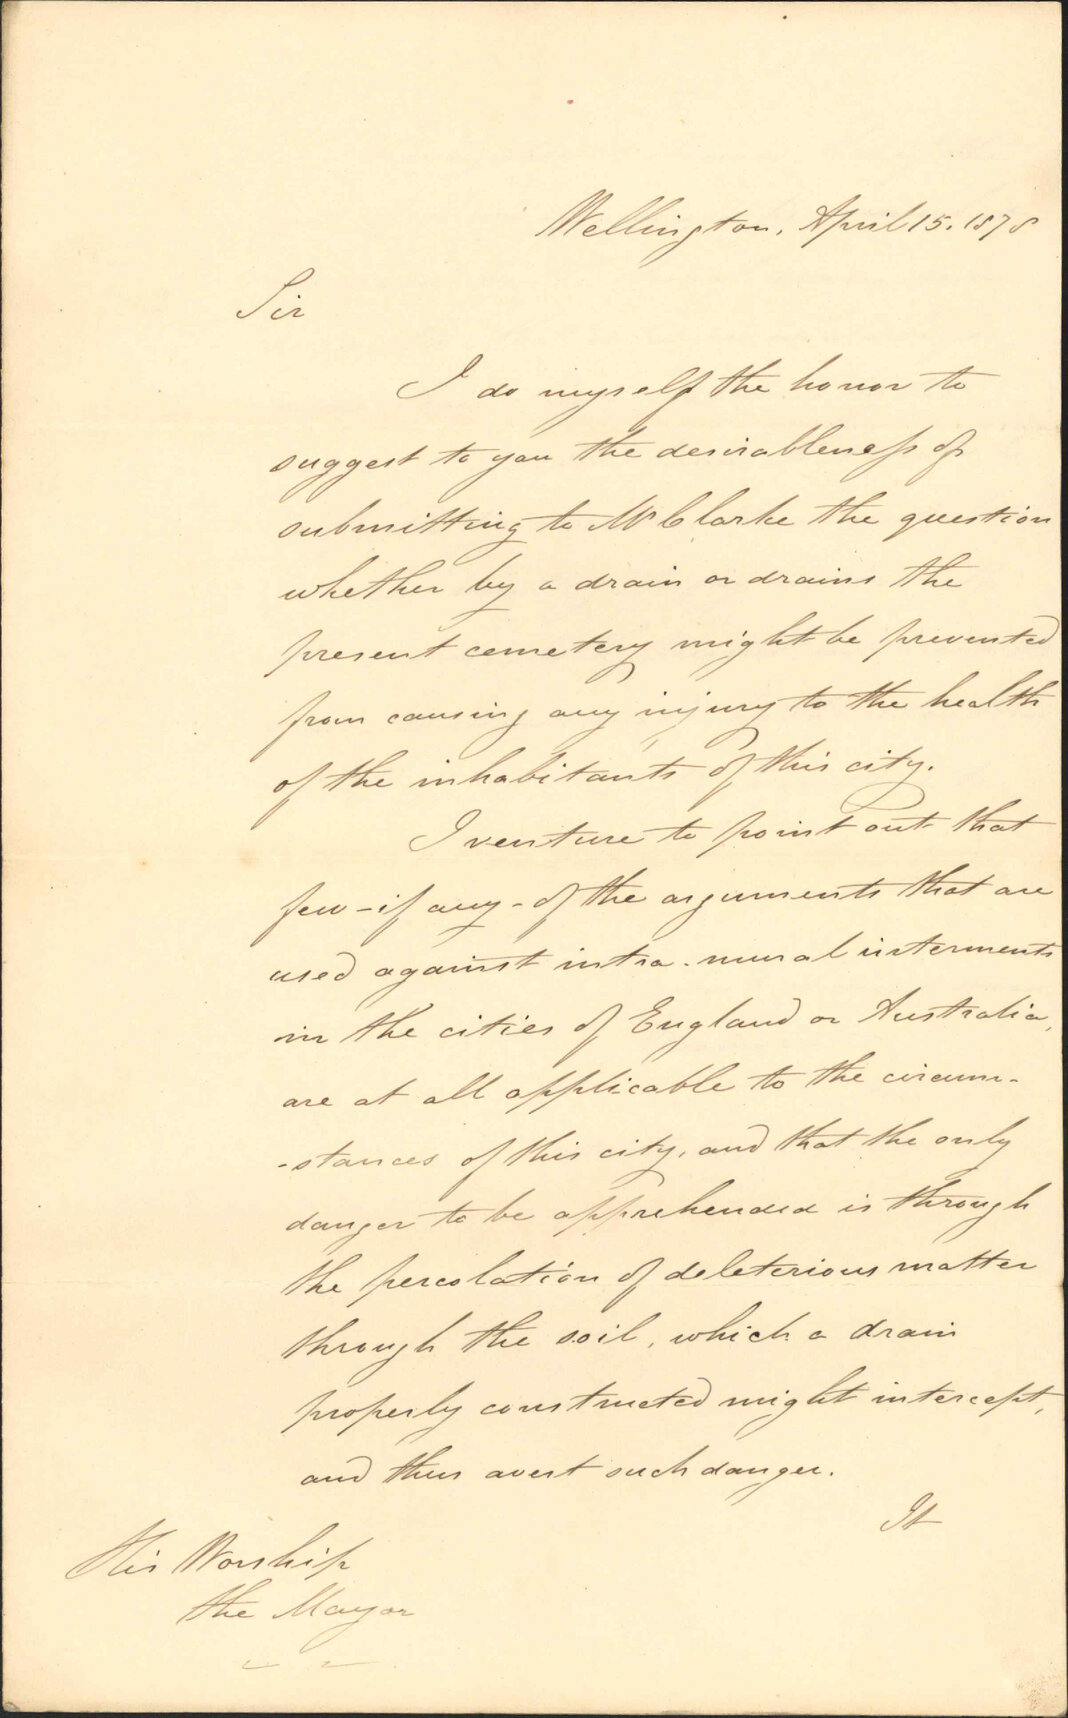 Wellington, April 15. 1878
Sir
I do myself the honor to
suggest to you the desirableness of
submitting to Mr Clarke the question
whether by a drain or drains the
present cemetery might be prevented
from causing any injury to the health
of the inhabitants of this city.
I venture to point out that
few - if any - of the arguments that are
used against intra-mural interments
in the cities of England or Australia,
are at all applicable to the circum-
-stances of this city, and that the only
danger to be apprehended is through
the percolation of deleterious matter
through the soil, which a drain
properly constructed might intercept,
and thus avert such danger.
It
His Worship
the Mayor